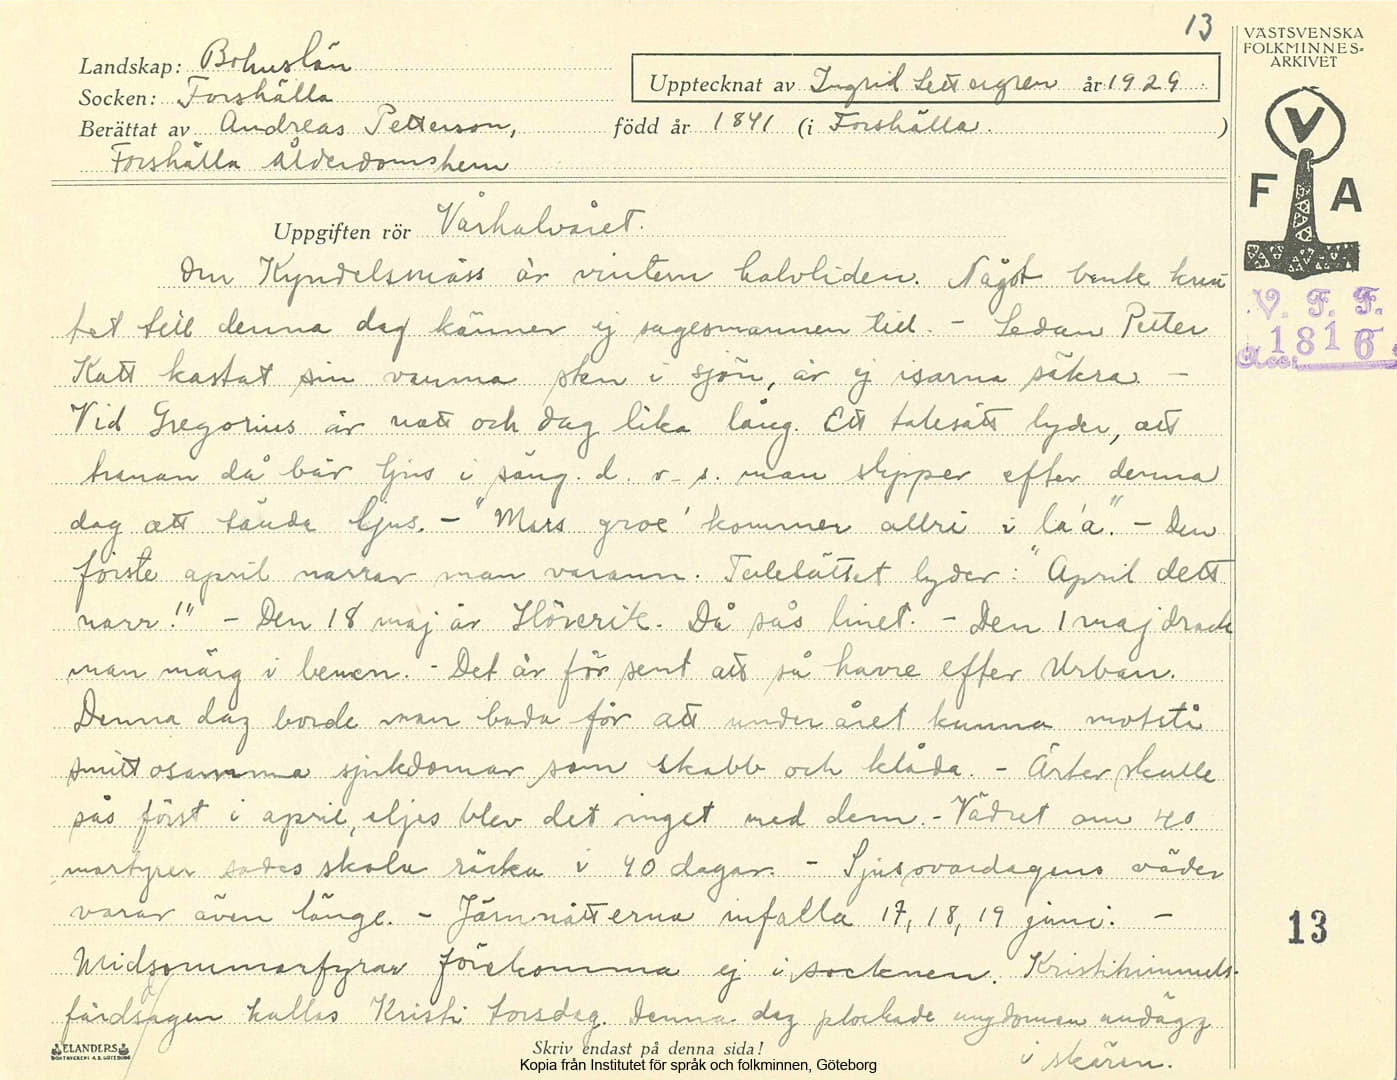 13
Landskap: Bohuslän
Socken: Forshälla
Upptecknat av Ingrid Settergren år 1929
Berättat av Andreas Petterson, född år 1841 (i Forshälla.)
Forshälla Ålderdomshem
VÄSTSVENSKA
FOLKMINNES-
ARKIVET
V
F A
V. F. F.
Acc: 1816
Uppgiften rör Vårhalvåret.
Om Kyndelsmäss är vintern halvliden. Något bruk knu
tet till denna dag känner ej sagesmannen till. - Sedan Petter
Katt kastat sin varma sten i sjön, är ej isarna säkra. -
Vid Gregorius är natt och dag lika lång. Ett talesätt lyder, att
tranan då bär ljus i säng. d. v. s. man slipper efter denna
dag att tända ljus. - "Mars groe' kommer allri i la'a". - Den
förste april narrar man varann. Talesättet lyder: "April dett
narr!" - Den 18 maj är Höverik. Då sås linet. - Den 1 maj drack
man märg i benen. - Det är för sent att så havre efter Urban.
Denna dag borde man bada för att under året kunna motstå
smittosamma sjukdomar som skabb och klåda. - Ärter skulle
sås först i april, eljes blev det inget med dem. - Vädret om 40
martyrer sades skola räcka i 40 dagar. - Sjusovardagens väder
varar även länge. - Järnnätterna infalla 17, 18, 19 juni. -
Midsommarfyrar förekomma ej i socknen. Kristihimmels-
färdsdagen kallas Kristi torsdag. Denna dag plockade ungdomen andägg
i skären.
13
ELANDERS
BOKTRYCKERI A.B. GÖTEBORG
Skriv endast på denna sida!
Kopia från Institutet för språk och folkminnen, Göteborg